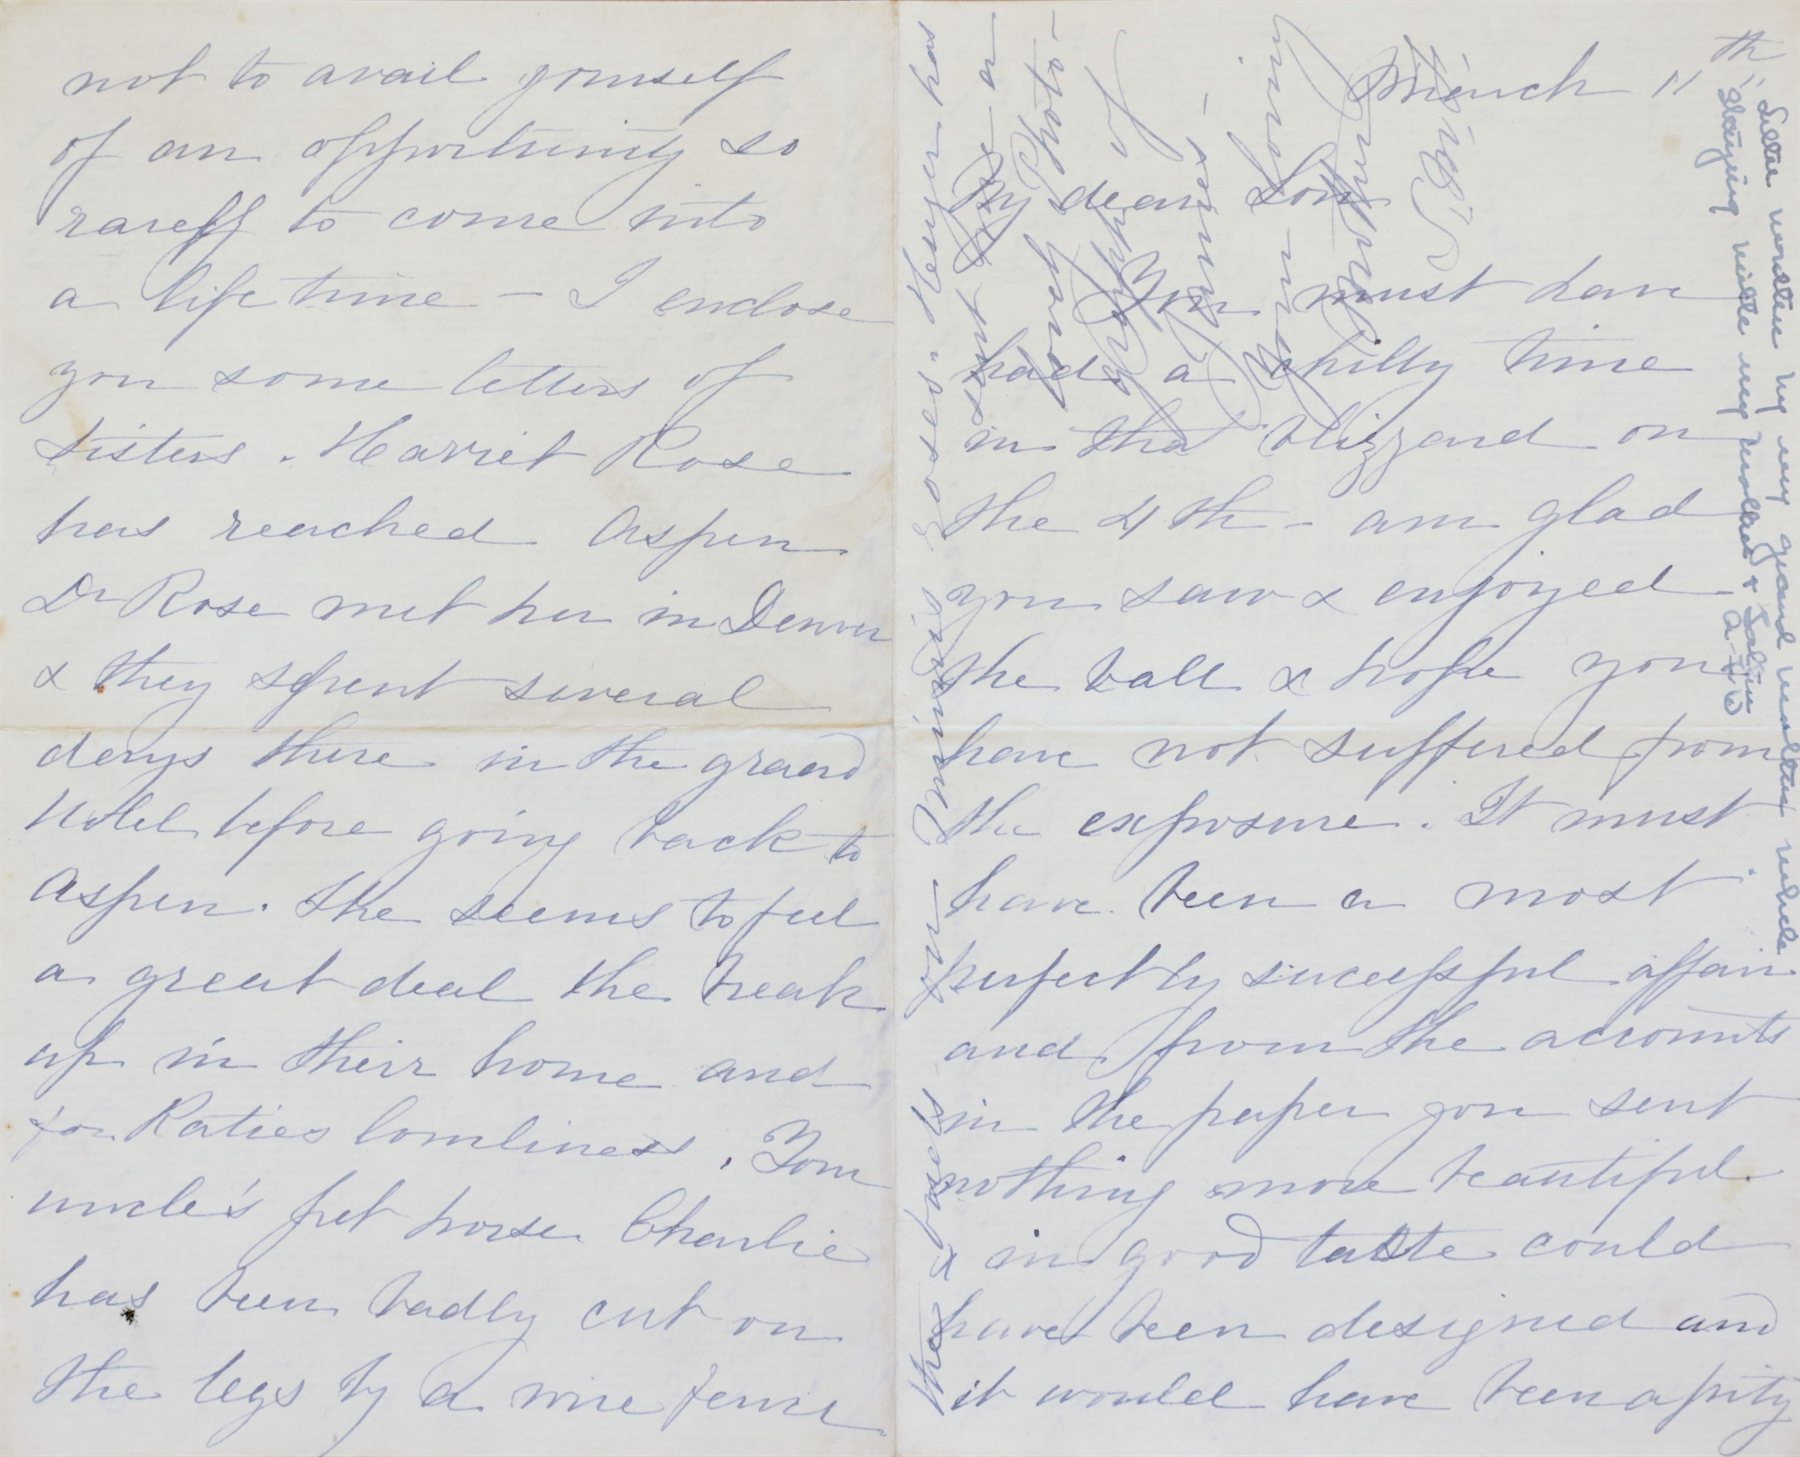 March 11th
My dear Son
You must have
had a chilly time
in the blizzard on
the 4th - am glad
you saw & enjoyed
the ball & hope you
have not suffered from
the exposure. It must
have been a most
perfectly successful affair
and from the accounts
in the paper you sent
nothing more beautiful
& in good taste could
have been designed and
it would have been a pity
not to avail yourself
of an opportunity so
rarely to come into
a life time - I enclose
you some letters of
sisters. Harriet Rose
has reached Aspen
Dr Rose met her in Denver
& they spent several
days there in the grand
Hotel before going back to
Aspen. She seems to feel
a great deal the break
up in their home and
for Katies lonliness. Your
uncle's pet horse Charlie
has been badly cut on
the legs by a wire fence
roses. Henry has
sent me a
photo-
of
your
Letter written by my grand mother while
staying with my mother &